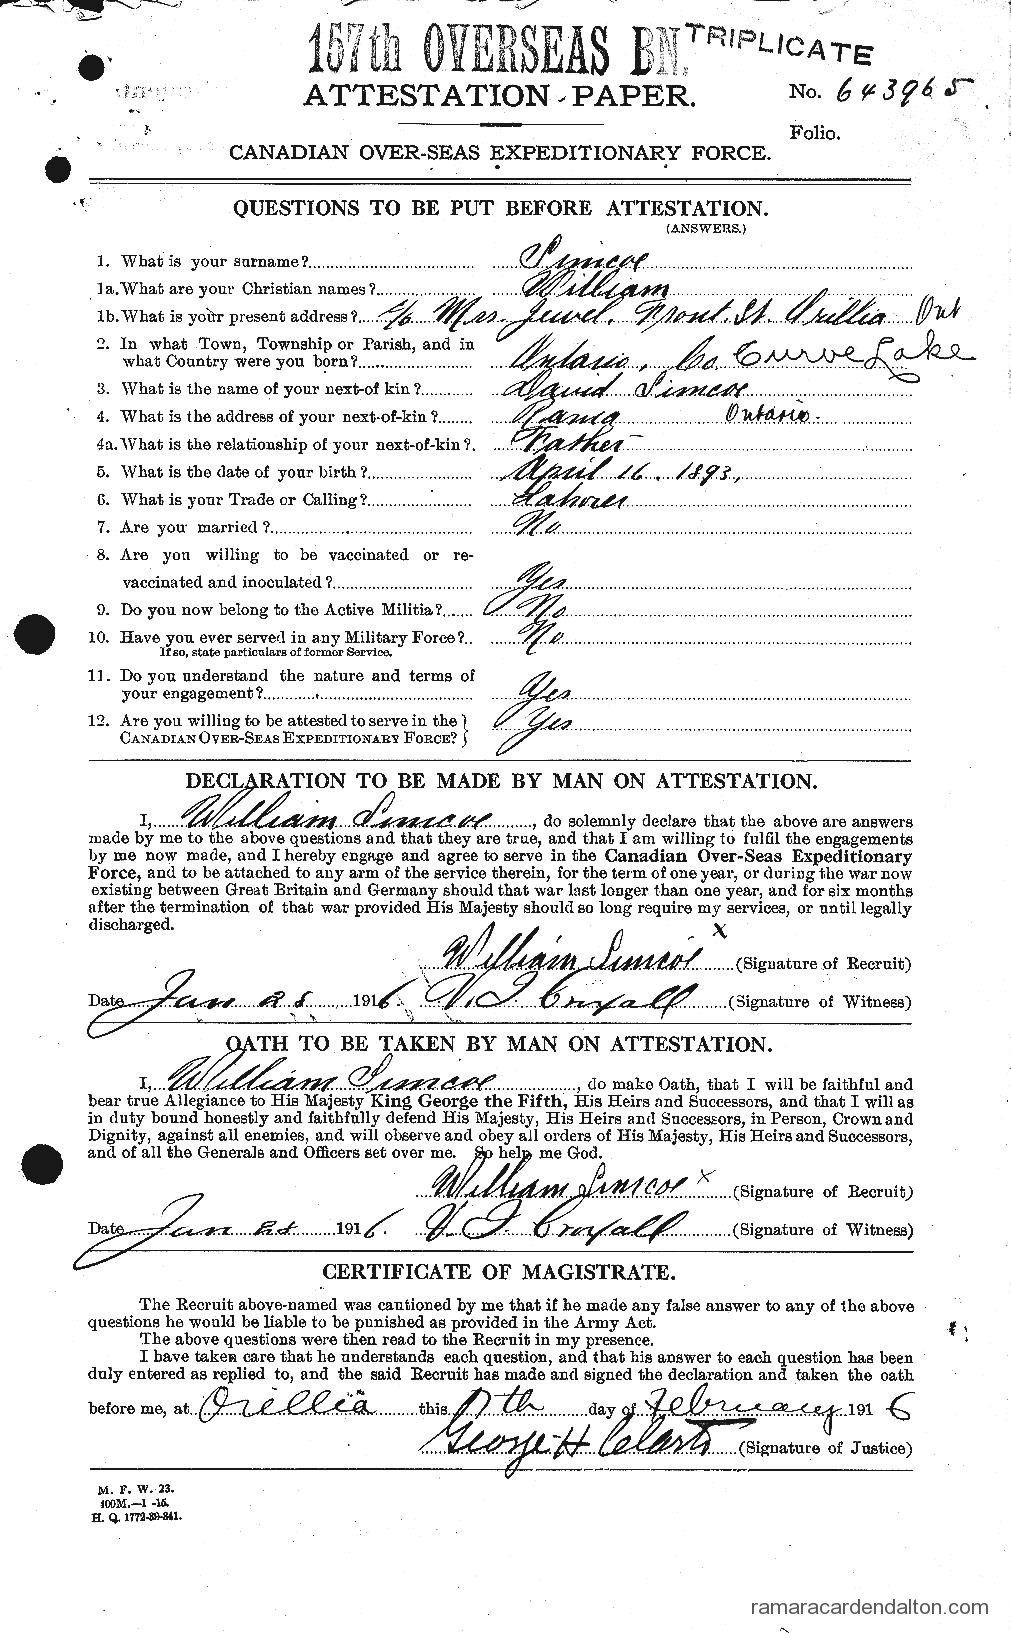 157th OVERSEAS BN.
TRIPLICATE
ATTESTATION PAPER.
No. 643965
Folio.
CANADIAN OVER-SEAS EXPEDITIONARY FORCE.
QUESTIONS TO BE PUT BEFORE ATTESTATION.
(ANSWERS.)
1. What is your surname? Simcoe
1a. What are your Christian names? William
1b. What is your present address? c/o Mrs. Jewel, Front. St. Orillia Ont
2. In what Town, Township or Parish, and in
what Country were you born? Ontario, Co. Curve Lake
3. What is the name of your next-of kin? David Simcoe
4. What is the address of your next-of-kin? Rama Ontario.
4a. What is the relationship of your next-of-kin? Father
5. What is the date of your birth? April 16, 1893,
6. What is your Trade or Calling? Laborer
7. Are you married? No
8. Are you willing to be vaccinated or re-
vaccinated and inoculated? Yes
9. Do you now belong to the Active Militia? No
10. Have you ever served in any Military Force? No
If so, state particulars of former Service.
11. Do you understand the nature and terms of
your engagement? Yes
12. Are you willing to be attested to serve in the
CANADIAN OVER-SEAS EXPEDITIONARY FORCE? Yes
DECLARATION TO BE MADE BY MAN ON ATTESTATION.
I, William Simcoe, do solemnly declare that the above are answers
made by me to the above questions and that they are true, and that I am willing to fulfil the engagements
by me now made, and I hereby engage and agree to serve in the Canadian Over-Seas Expeditionary
Force, and to be attached to any arm of the service therein, for the term of one year, or during the war now
existing between Great Britain and Germany should that war last longer than one year, and for six months
after the termination of that war provided His Majesty should so long require my services, or until legally
discharged.
William Simcoe x (Signature of Recruit)
Date Jan 28 1916. V. T. Croxall (Signature of Witness)
OATH TO BE TAKEN BY MAN ON ATTESTATION.
I, William Simcoe, do make Oath, that I will be faithful and
bear true Allegiance to His Majesty King George the Fifth, His Heirs and Successors, and that I will as
in duty bound honestly and faithfully defend His Majesty, His Heirs and Successors, in Person, Crown and
Dignity, against all enemies, and will observe and obey all orders of His Majesty, His Heirs and Successors,
and of all the Generals and Officers set over me. So help me God.
William Simcoe x (Signature of Recruit)
Date Jan 28 1916. V. T. Croxall (Signature of Witness)
CERTIFICATE OF MAGISTRATE.
The Recruit above-named was cautioned by me that if he made any false answer to any of the above
questions he would be liable to be punished as provided in the Army Act.
The above questions were then read to the Recruit in my presence.
I have taken care that he understands each question, and that his answer to each question has been
duly entered as replied to, and the said Recruit has made and signed the declaration and taken the oath
before me, at Orillia this 17th day of February 1916
George H Clark (Signature of Justice)
M. F. W. 23.
400M.—1-15.
H. Q. 1772-39-841.
ramaracardendalton.com